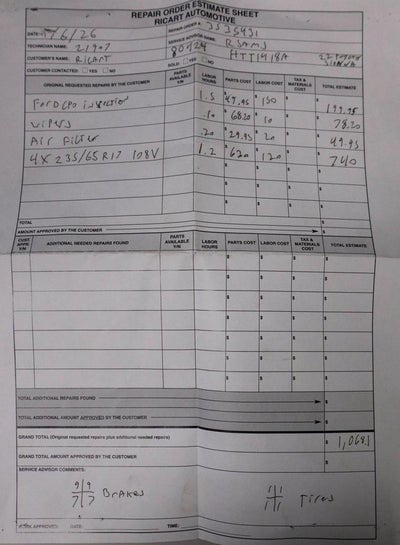 REPAIR ORDER ESTIMATE SHEET
RICART AUTOMOTIVE
DATE: 1/6/26 REPAIR ORDER #: 3535931
TECHNICIAN NAME: 21907 SERVICE ADVISOR NAME: 80424 RSAMS
CUSTOMER'S NAME: RICART HTT1418A
CUSTOMER CONTACTED: YES NO SOLD: YES NO
ORIGINAL REQUESTED REPAIRS BY THE CUSTOMER PARTS AVAILABLE Y/N LABOR HOURS PARTS COST LABOR COST TAX & MATERIALS COST TOTAL ESTIMATE
Ford CPO inspection 1.5 $49.95 $150 $ $199.95
wipers .10 $68.20 $10 $ $78.20
Air Filter .20 $29.95 $20 $ $49.95
4X 235/65R17 108V 1.2 $620 $120 $ $740
TOTAL
AMOUNT APPROVED BY THE CUSTOMER $
CUST APPR Y/N ADDITIONAL NEEDED REPAIRS FOUND PARTS AVAILABLE Y/N LABOR HOURS PARTS COST LABOR COST TAX & MATERIALS COST TOTAL ESTIMATE
TOTAL ADDITIONAL REPAIRS FOUND $
TOTAL ADDITIONAL AMOUNT APPROVED BY THE CUSTOMER $
GRAND TOTAL (Original requested repairs plus additional needed repairs) $1,068.1
GRAND TOTAL AMOUNT APPROVED BY THE CUSTOMER $
SERVICE ADVISOR COMMENTS:
9 9
7 7 Brakes
11 11
11 11 Tires
APPROVED: DATE: TIME: